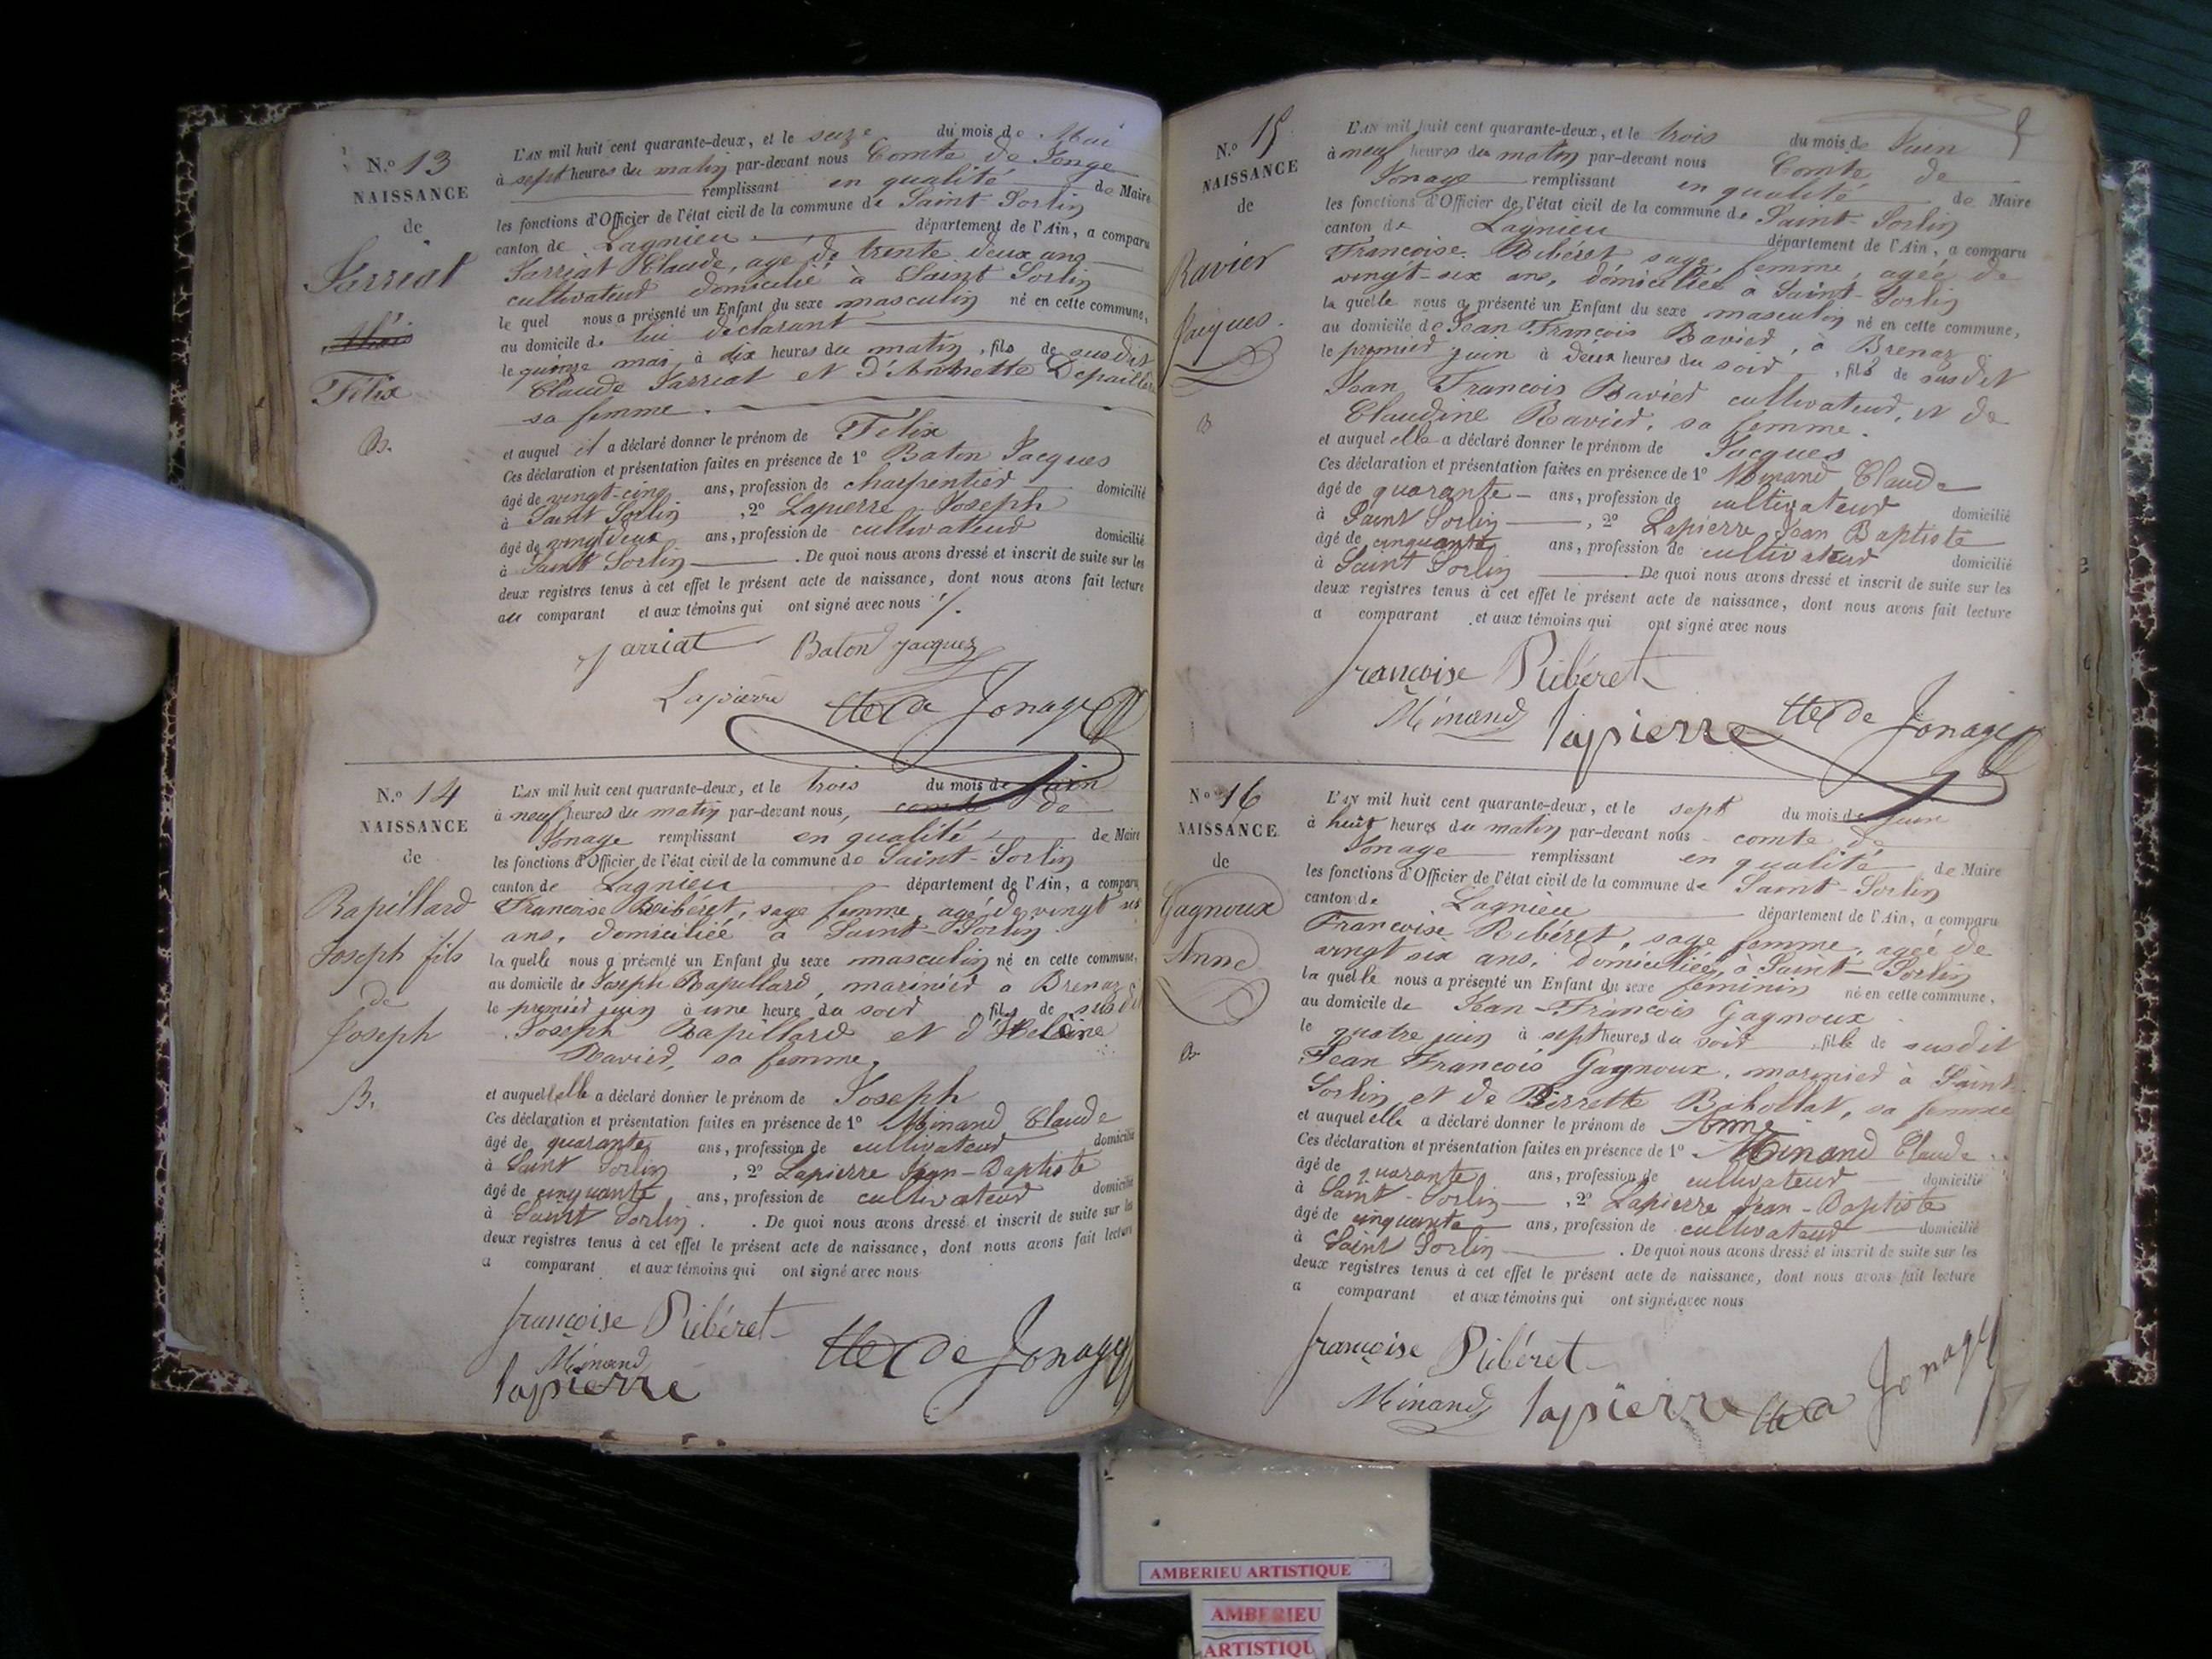 N.º 13
NAISSANCE
de
Jarriat
Félix
B.
L'AN mil huit cent quarante-deux, et le seize du mois de Mai
à sept heures du matin par-devant nous Comte de Jonage
remplissant en qualité de Maire
les fonctions d'Officier de l'état civil de la commune de Saint-Sorlin
canton de Lagnieu département de l'Ain, a comparu
Jarriat Claude, agé de trente deux ans
cultivateur domicilié à Saint Sorlin
le quel nous a présenté un Enfant du sexe masculin né en cette commune,
au domicile de lui déclarant
le quinze mai, à dix heures du matin, fils de susdit
Claude Jarriat et d'Antoinette Depailler
sa femme.
et auquel il a déclaré donner le prénom de Félix
Ces déclaration et présentation faites en présence de 1º Baton Jacques
âgé de vingt-cinq ans, profession de charpentier domicilié
à Saint Sorlin, 2º Lapierre Joseph
âgé de vingt deux ans, profession de cultivateur domicilié
à Saint Sorlin. De quoi nous avons dressé et inscrit de suite sur les
deux registres tenus à cet effet le présent acte de naissance, dont nous avons fait lecture
au comparant et aux témoins qui ont signé avec nous
jarriat Baton jacques
Lapierre Cte de Jonage
N.º 14
NAISSANCE
de
Rapillard
Joseph fils
de
Joseph
B.
L'AN mil huit cent quarante-deux, et le trois du mois de Juin
à neuf heures du matin par-devant nous, comte de
Jonage remplissant en qualité de Maire
les fonctions d'Officier de l'état civil de la commune de Saint-Sorlin
canton de Lagnieu département de l'Ain, a comparu
Francoise Ribéret, sage femme, agé de vingt six
ans, domiciliée à Saint-Sorlin
la quelle nous a présenté un Enfant du sexe masculin né en cette commune,
au domicile de Joseph Rapillard, marinier a Brenaz
le premier juin à une heure du soir fils de susdit
Joseph Rapillard et d'Helaine
Ravier, sa femme.
et auquel elle a déclaré donner le prénom de Joseph
Ces déclaration et présentation faites en présence de 1º Minand Claude
âgé de quarante ans, profession de cultivateur domicilié
à Saint Sorlin, 2º Lapierre Jean-Baptiste
âgé de cinquante ans, profession de cultivateur domicilié
à Saint Sorlin. De quoi nous avons dressé et inscrit de suite sur les
deux registres tenus à cet effet le présent acte de naissance, dont nous avons fait lecture
a comparant et aux témoins qui ont signé avec nous
françoise Ribéret
Minand Cte de Jonage
lapierre
5
N.º 15
NAISSANCE
de
Ravier
Jacques.
B
L'AN mil huit cent quarante-deux, et le trois du mois de Juin
à neuf heures du matin par-devant nous Comte de
Jonage remplissant en qualité de Maire
les fonctions d'Officier de l'état civil de la commune de Saint-Sorlin
canton de Lagnieu département de l'Ain, a comparu
Françoise Ribéret sage femme, agée de
vingt-six ans, domiciliée à Saint-Sorlin
la quelle nous a présenté un Enfant du sexe masculin né en cette commune,
au domicile de Jean François Ravier, à Brenaz
le premier juin à deux heures du soir, fils de susdit
Jean François Ravier cultivateur, et de
Claudine Ravier, sa femme.
et auquel elle a déclaré donner le prénom de Jacques
Ces déclaration et présentation faites en présence de 1º Minand Claude
âgé de quarante ans, profession de cultivateur domicilié
à Saint Sorlin, 2º Lapierre Jean Baptiste
âgé de cinquante ans, profession de cultivateur domicilié
à Saint Sorlin. De quoi nous avons dressé et inscrit de suite sur les
deux registres tenus à cet effet le présent acte de naissance, dont nous avons fait lecture
a comparant et aux témoins qui ont signé avec nous
françoise Ribéret
Minand lapierre Cte de Jonage
Nº 16
NAISSANCE
de
Gagnoux
Anne
B.
L'AN mil huit cent quarante-deux, et le sept du mois de Juin
à huit heures du matin par-devant nous comte de
Jonage remplissant en qualité de Maire
les fonctions d'Officier de l'état civil de la commune de Saint-Sorlin
canton de Lagnieu département de l'Ain, a comparu
Françoise Ribéret, sage femme, agée de
vingt six ans, domiciliée, à Saint-Sorlin
la quelle nous a présenté un Enfant du sexe féminin né en cette commune,
au domicile de Jean-François Gagnoux
le quatre juin à sept heures du soir fille de susdit
Jean François Gagnoux, marinier à Saint
Sorlin et de Pierrette Bahollat, sa femme
et auquel elle a déclaré donner le prénom de Anne
Ces déclaration et présentation faites en présence de 1º Minand Claude
âgé de quarante ans, profession de cultivateur domicilié
à Saint-Sorlin, 2º Lapierre Jean-Baptiste
âgé de cinquante ans, profession de cultivateur domicilié
à Saint Sorlin. De quoi nous avons dressé et inscrit de suite sur les
deux registres tenus à cet effet le présent acte de naissance, dont nous avons fait lecture
a comparant et aux témoins qui ont signé avec nous
françoise Ribéret
Minand lapierre Cte de Jonage
AMBERIEU ARTISTIQUE
AMBERIEU
ARTISTIQU